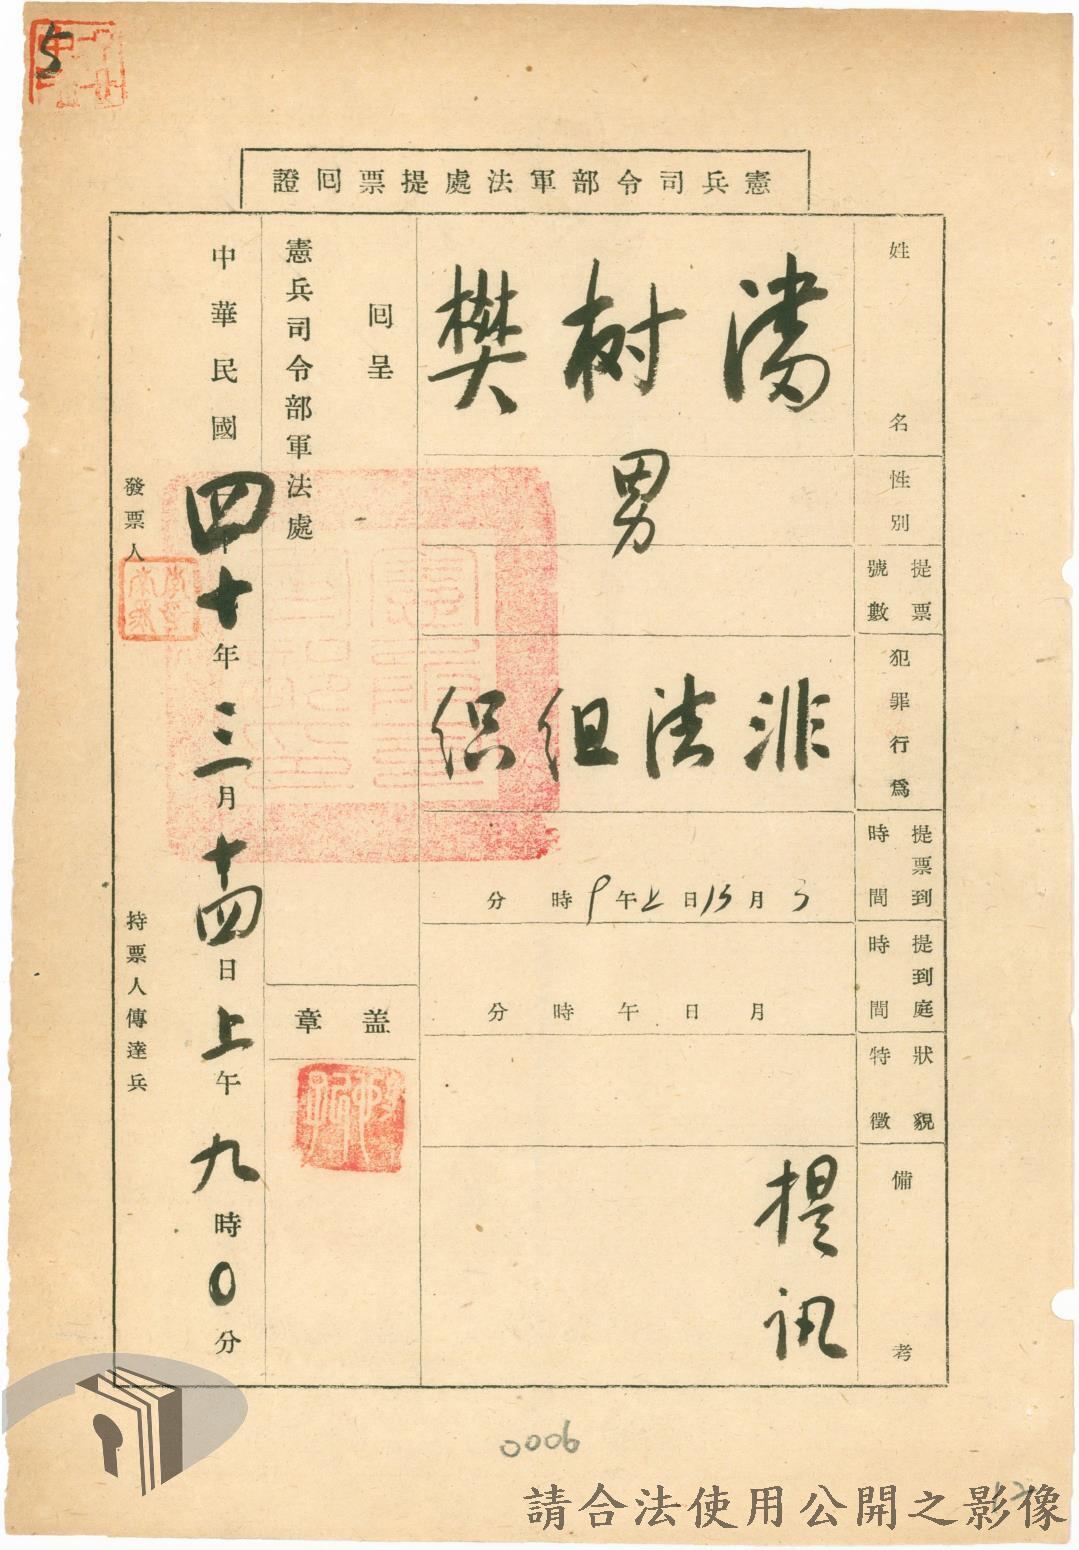 5
憲兵司令部軍法處提票回證
姓名
湯樹樊
性別
男
提票號數
犯罪行爲
非法組織
提票到時間
3月15日上午9時 分
提到庭時間
月 日 午 時 分
狀貌特徵
備考
提訊
回呈
憲兵司令部軍法處
蓋章
中華民國四十年三月十四日上午九時0分
發票人
持票人傳達兵
0006
請合法使用公開之影像